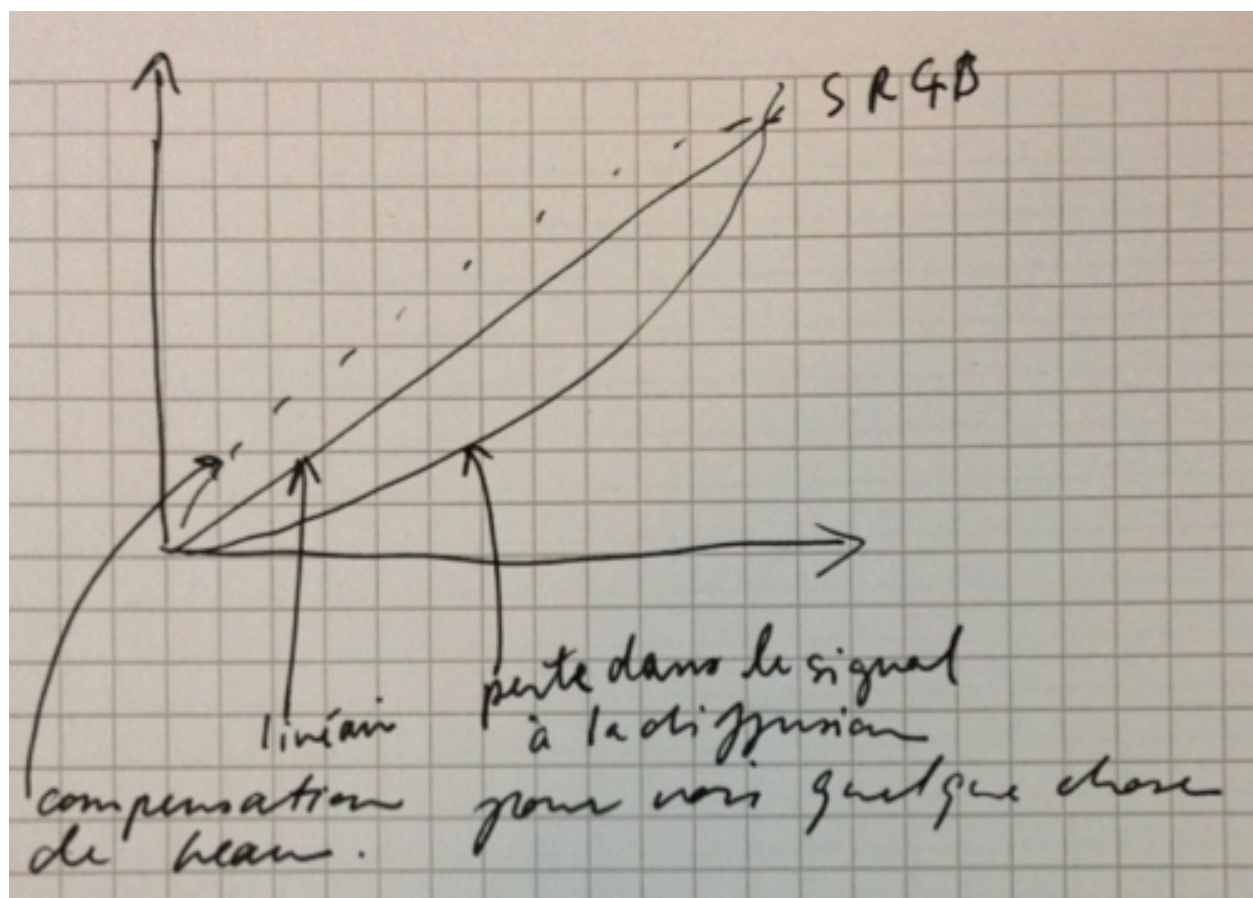 SRGB
linéair
perte dans le signal
à la diffusion
compensation pour voir quelque chose
de beau.